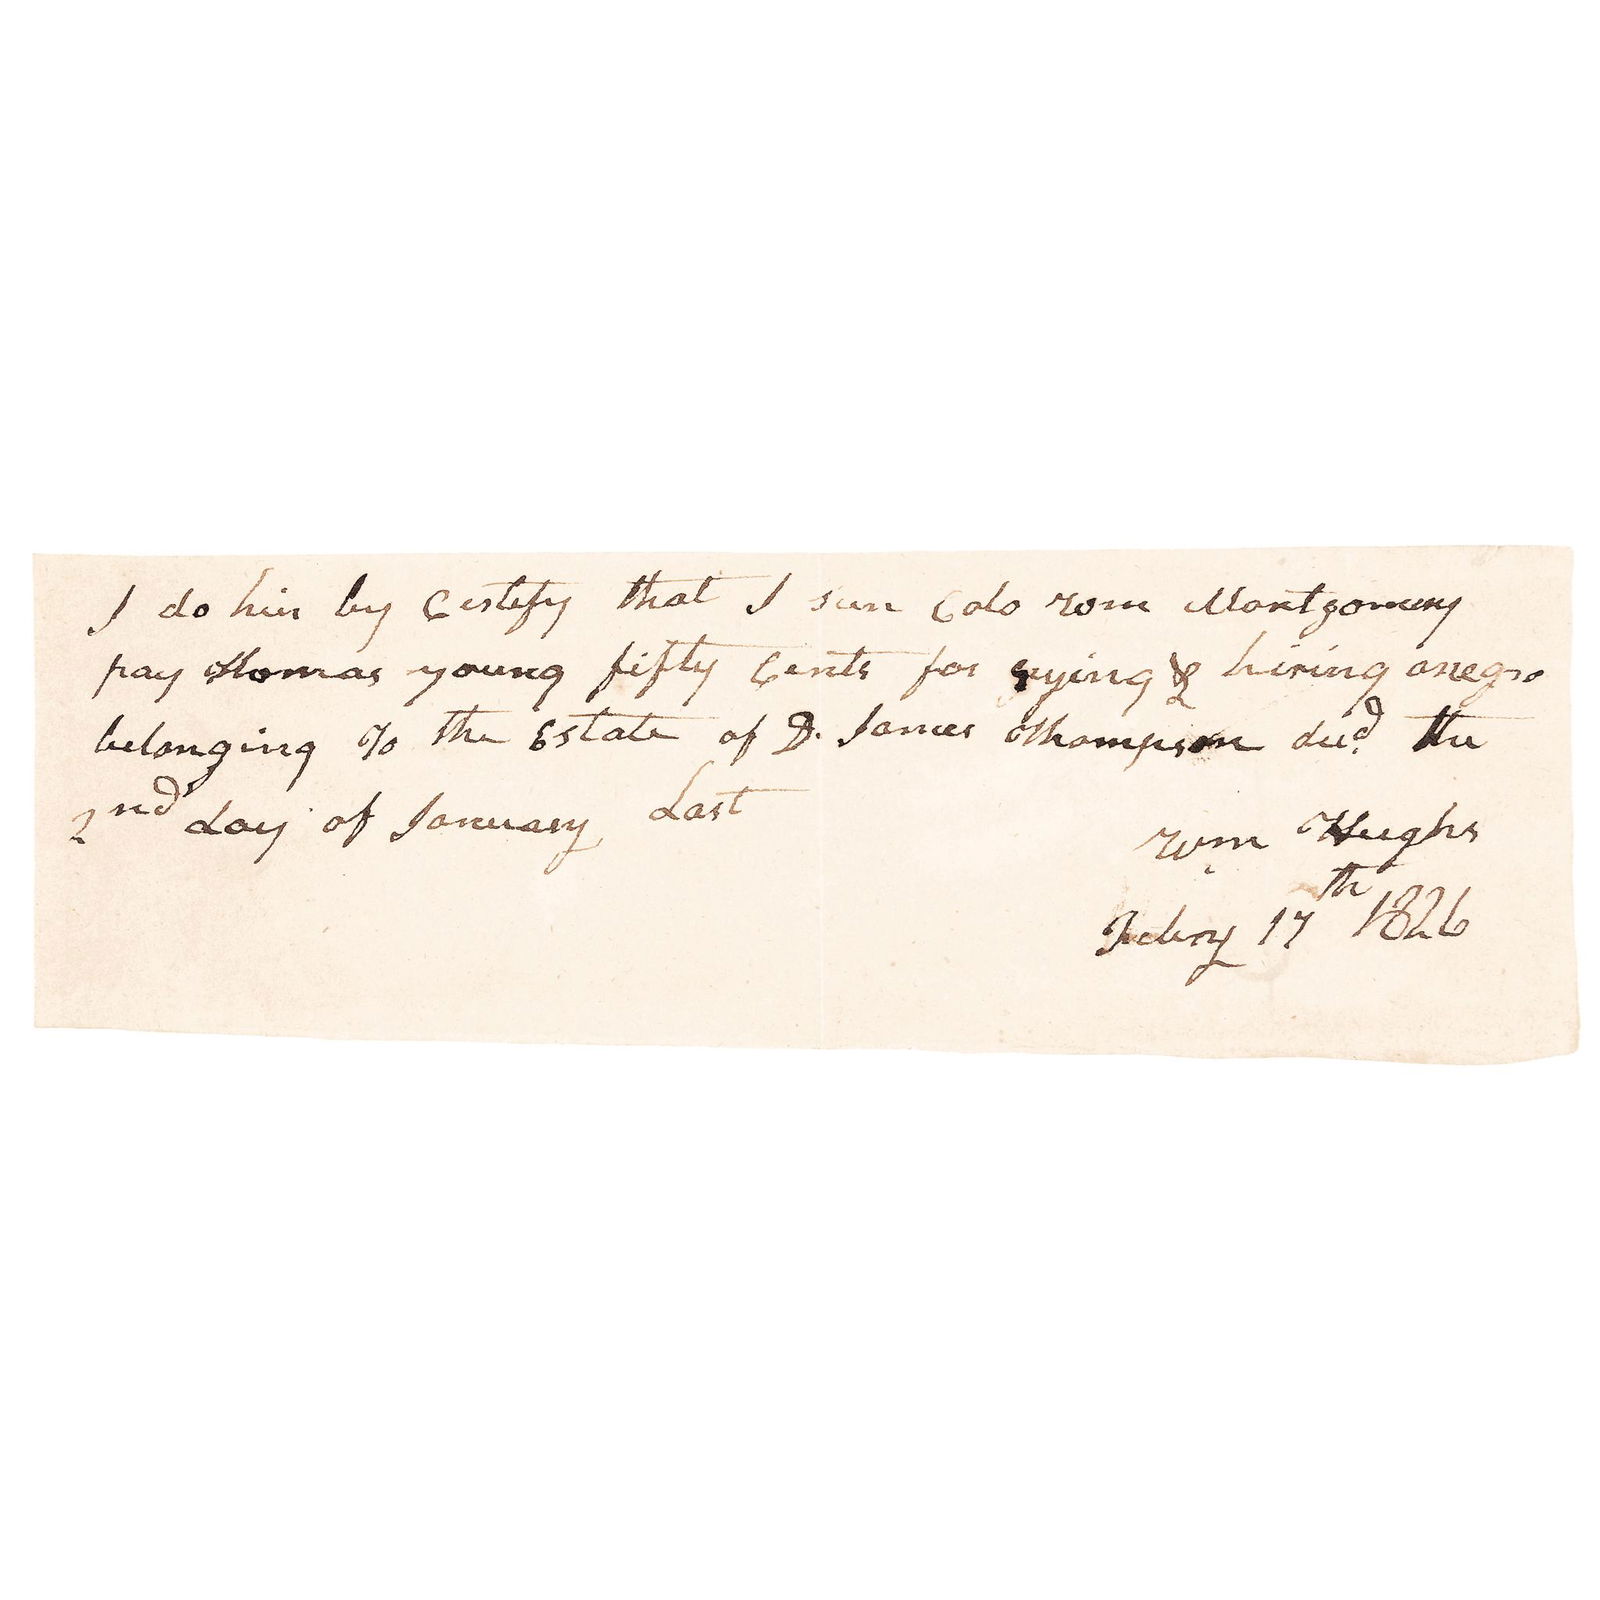 I do hier by Certify that I seen Colo Wm Montgomery
pay Thomas young fifty Cents for crying & hiring anegro
belonging To the Estate of D. James Thompson decd. the
2nd day of January Last
Wm Hughs
Febry 17th 1826